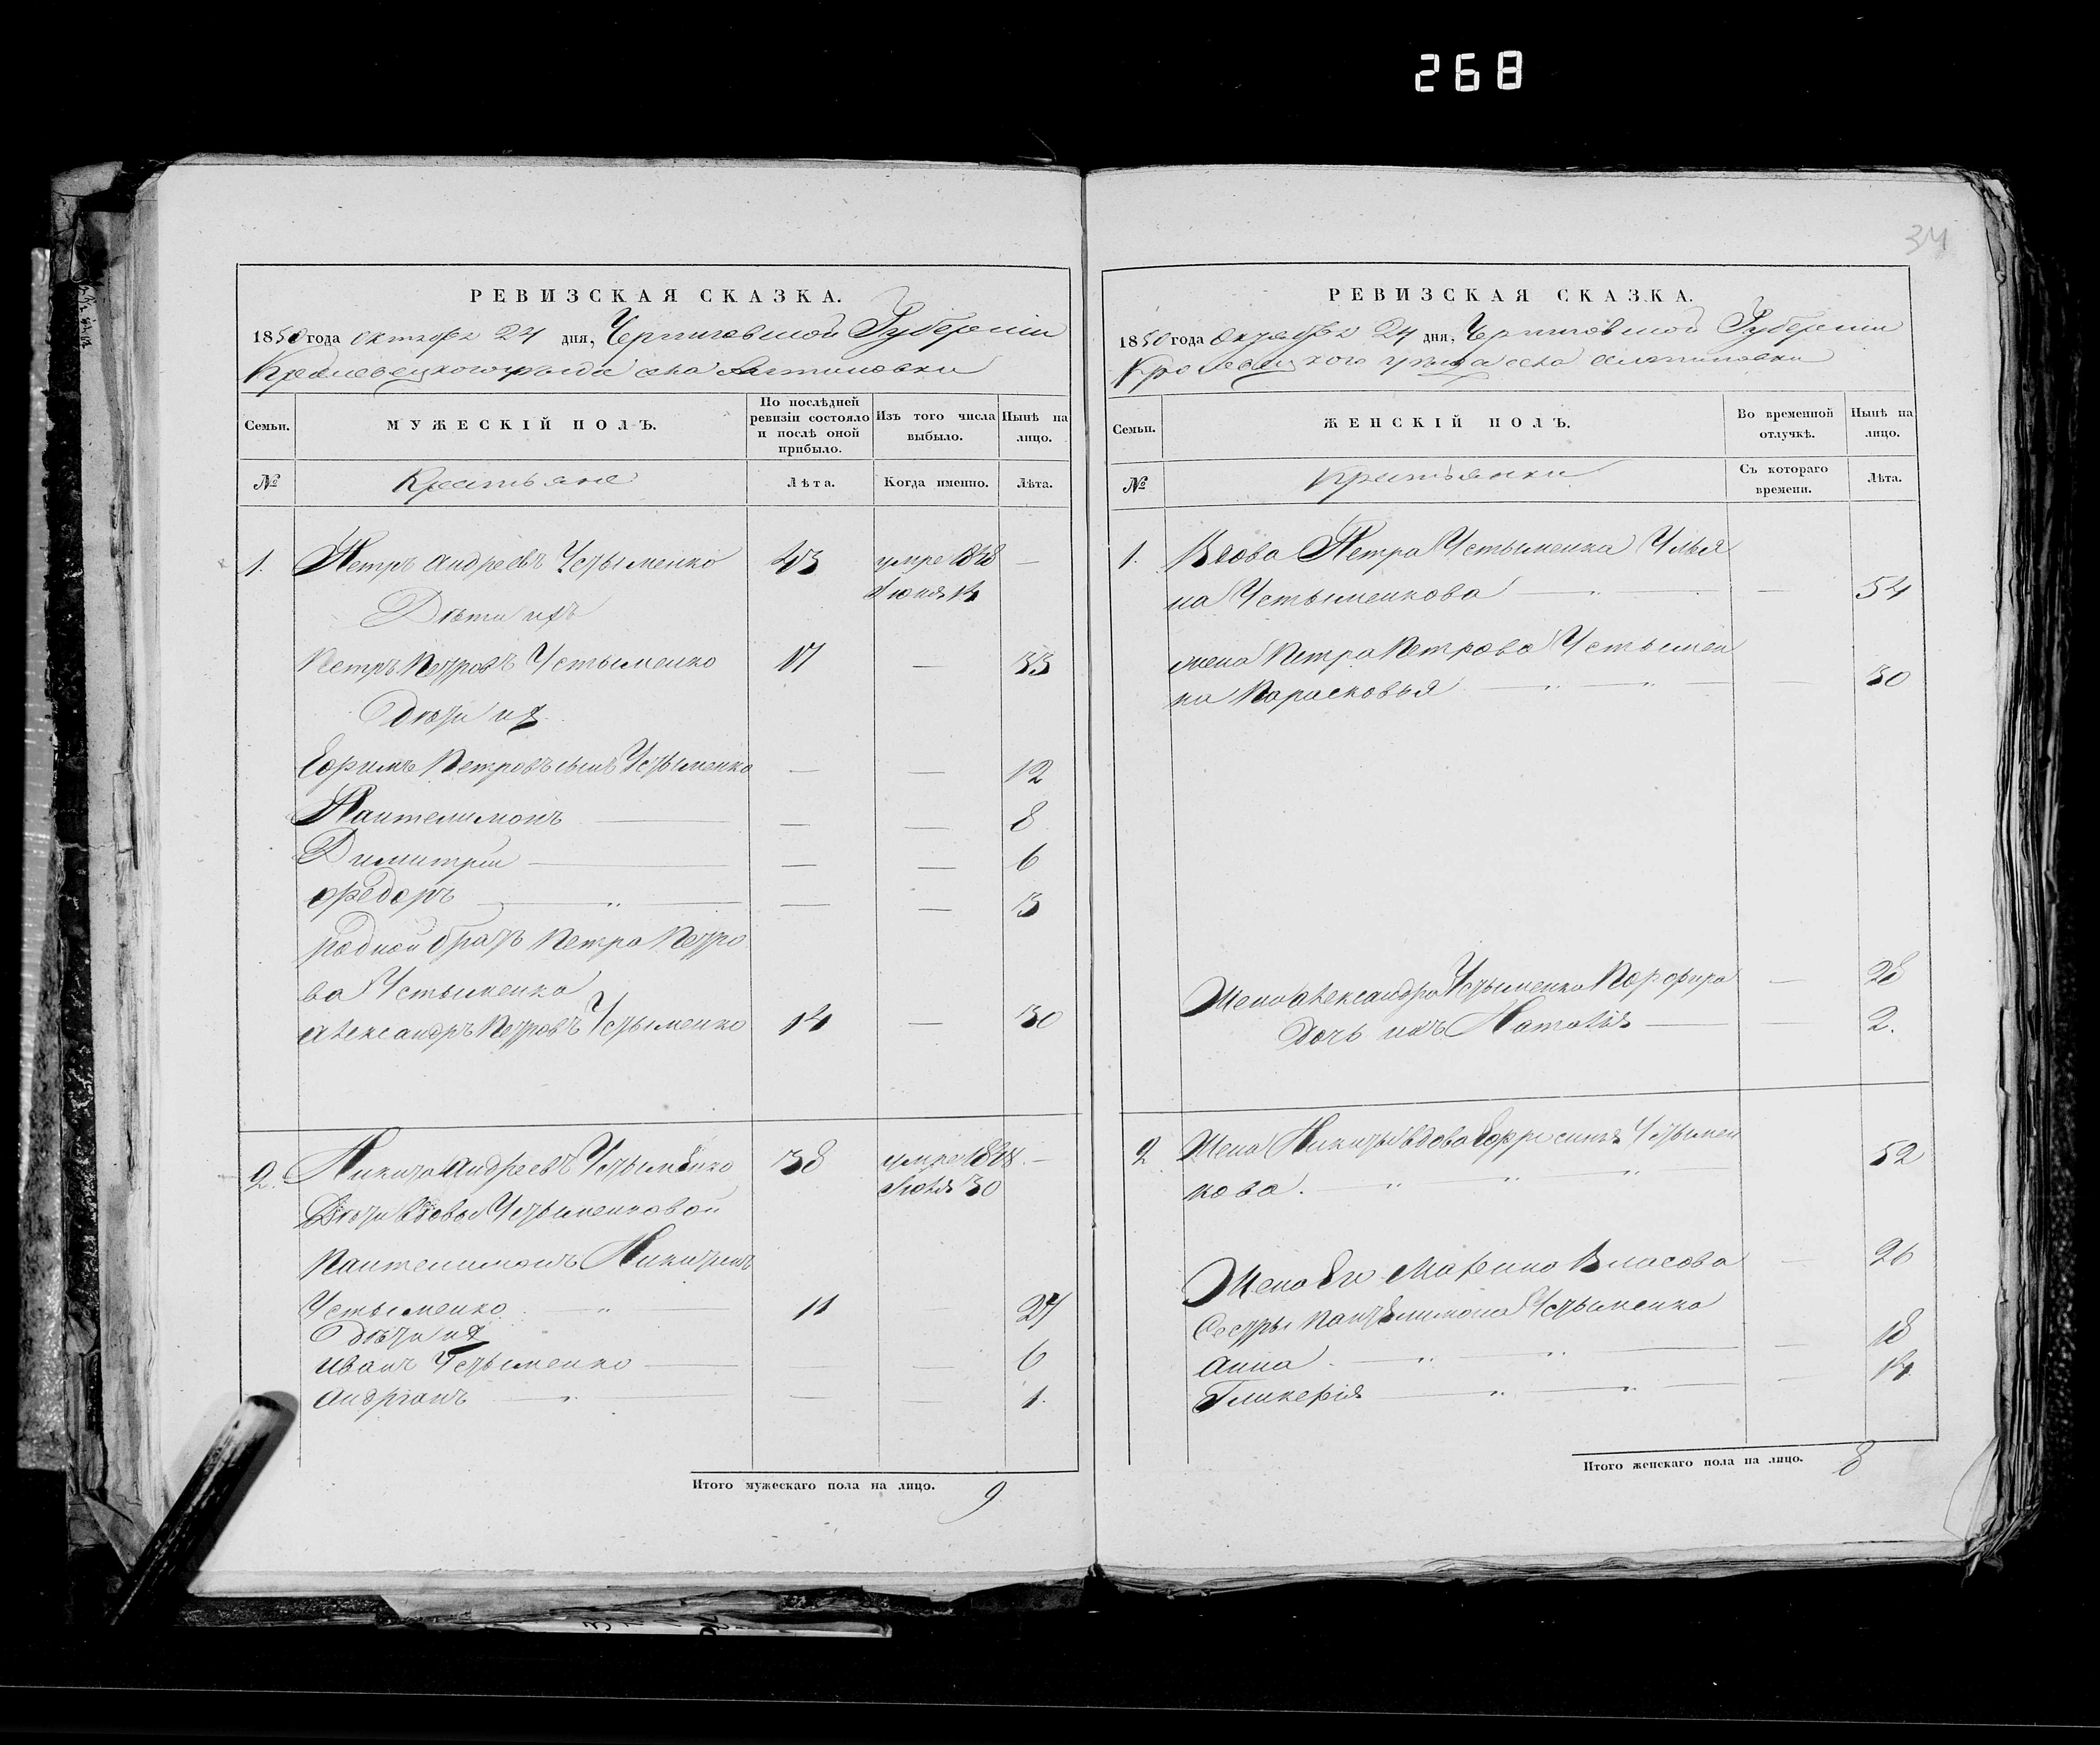 268
34
РЕВИЗСКАЯ СКАЗКА.
1850 года Октября 24 дня, Черниговской Губернии
Кролевецкого уезда села
Семьи.
МУЖЕСКІЙ ПОЛЪ.
По послѣдней ревизіи состояло и послѣ оной прибыло.
Изъ того числа выбыло.
Нынѣ на лицо.
№
Крестьяне
Лѣта.
Когда именно.
Лѣта.
1. Петръ Андреевъ Устыменко 43 умре 1848 —
Июня 14
Дѣти ихъ
Петръ Петровъ Устыменко 17 — 33
Дѣти их
Ефимъ Петровъ сынъ Устыменко — — 12
Пантелимонъ — — — 8
Димитрій — — — 6
Федоръ — „ — — — 3
Родной братъ Петра Петро
ва Устыменка
Александръ Петровъ Устыменко 14 — 30
2. Никита Андреевъ Устыменко 38 умре 1848. —
Июля 30
Дѣти вдовы Устыменковой
Пантелимонъ Никитинъ
Устыменко — „ 11 — 27
Дѣти их
Иванъ Устыменко — — 6
Андріанъ — „ — — — 1.
Итого мужескаго пола на лицо. 9
РЕВИЗСКАЯ СКАЗКА.
1850 года Октября 24 дня, Черниговской Губернии
Кролевецкого уезда села
Семьи.
ЖЕНСКІЙ ПОЛЪ.
Во временной отлучкѣ.
Нынѣ на лицо.
№
Крестьянки
Съ котораго времени.
Лѣта.
1. Вдова Петра Устыменка Улья
на Устыменкова — „ — — 54
жена Петра Петрова Устымен
ка Парасковья — „ — „ — — 30
Жена Александра Устыменка Порфира — 28
Дочь ихъ Наталія — — 2.
2 Жена Никиты вдова Ефросинія Устымен
кова. — „ — „ — „ 52
Жена Его Марина Власова — 26
Сестры Пантелимона Устыменка
Анна. — „ — „ — — 18
Гликерія — „ — „ — — 14
Итого женскаго пола на лицо. 8